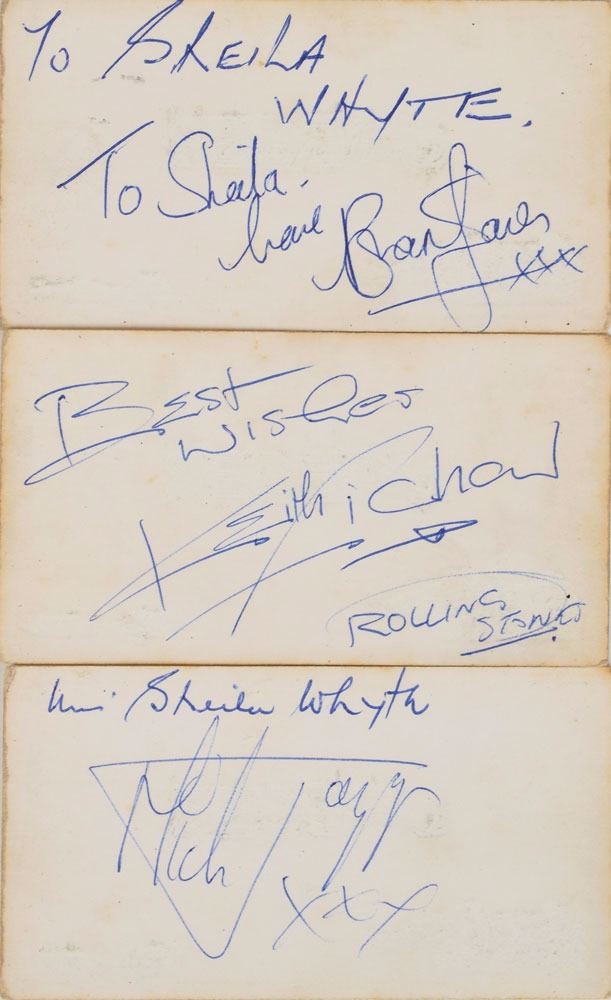 To SHEILA
WHYTE.
To Sheila.
love Brian Jones
xxx
BEST
WISHES
KEITH RICHARD
ROLLING
STONES
Sheila Whyte
Mick Jagger
xxx